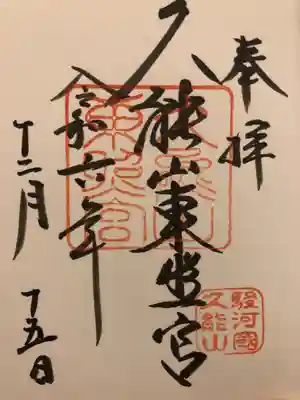 奉拝
久能山東照宮
令和六年
十二月
十五日
東照宮
駿河國
久能山